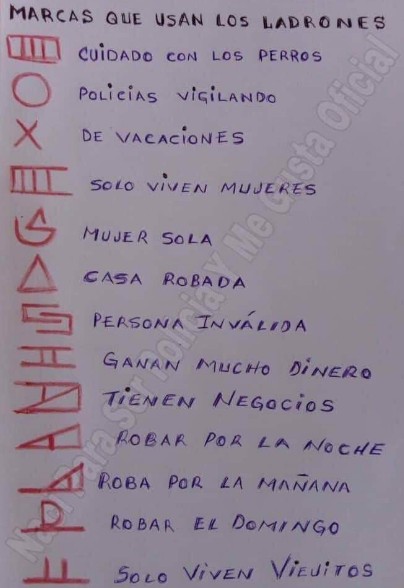 MARCAS QUE USAN LOS LADRONES
CUIDADO CON LOS PERROS
POLICIAS VIGILANDO
DE VACACIONES
SOLO VIVEN MUJERES
MUJER SOLA
CASA ROBADA
PERSONA INVÁLIDA
GANAN MUCHO DINERO
TIENEN NEGOCIOS
ROBAR POR LA NOCHE
ROBA POR LA MAÑANA
ROBAR EL DOMINGO
SOLO VIVEN VIEJITOS
Nací Para Ser Policía Y Me Gusta Oficial